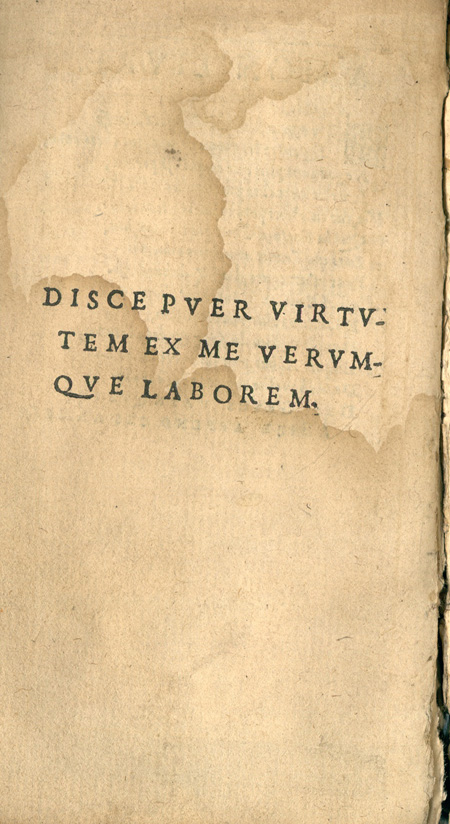 DISCE PVER VIRTV-
TEM EX ME VERVM-
QVE LABOREM.